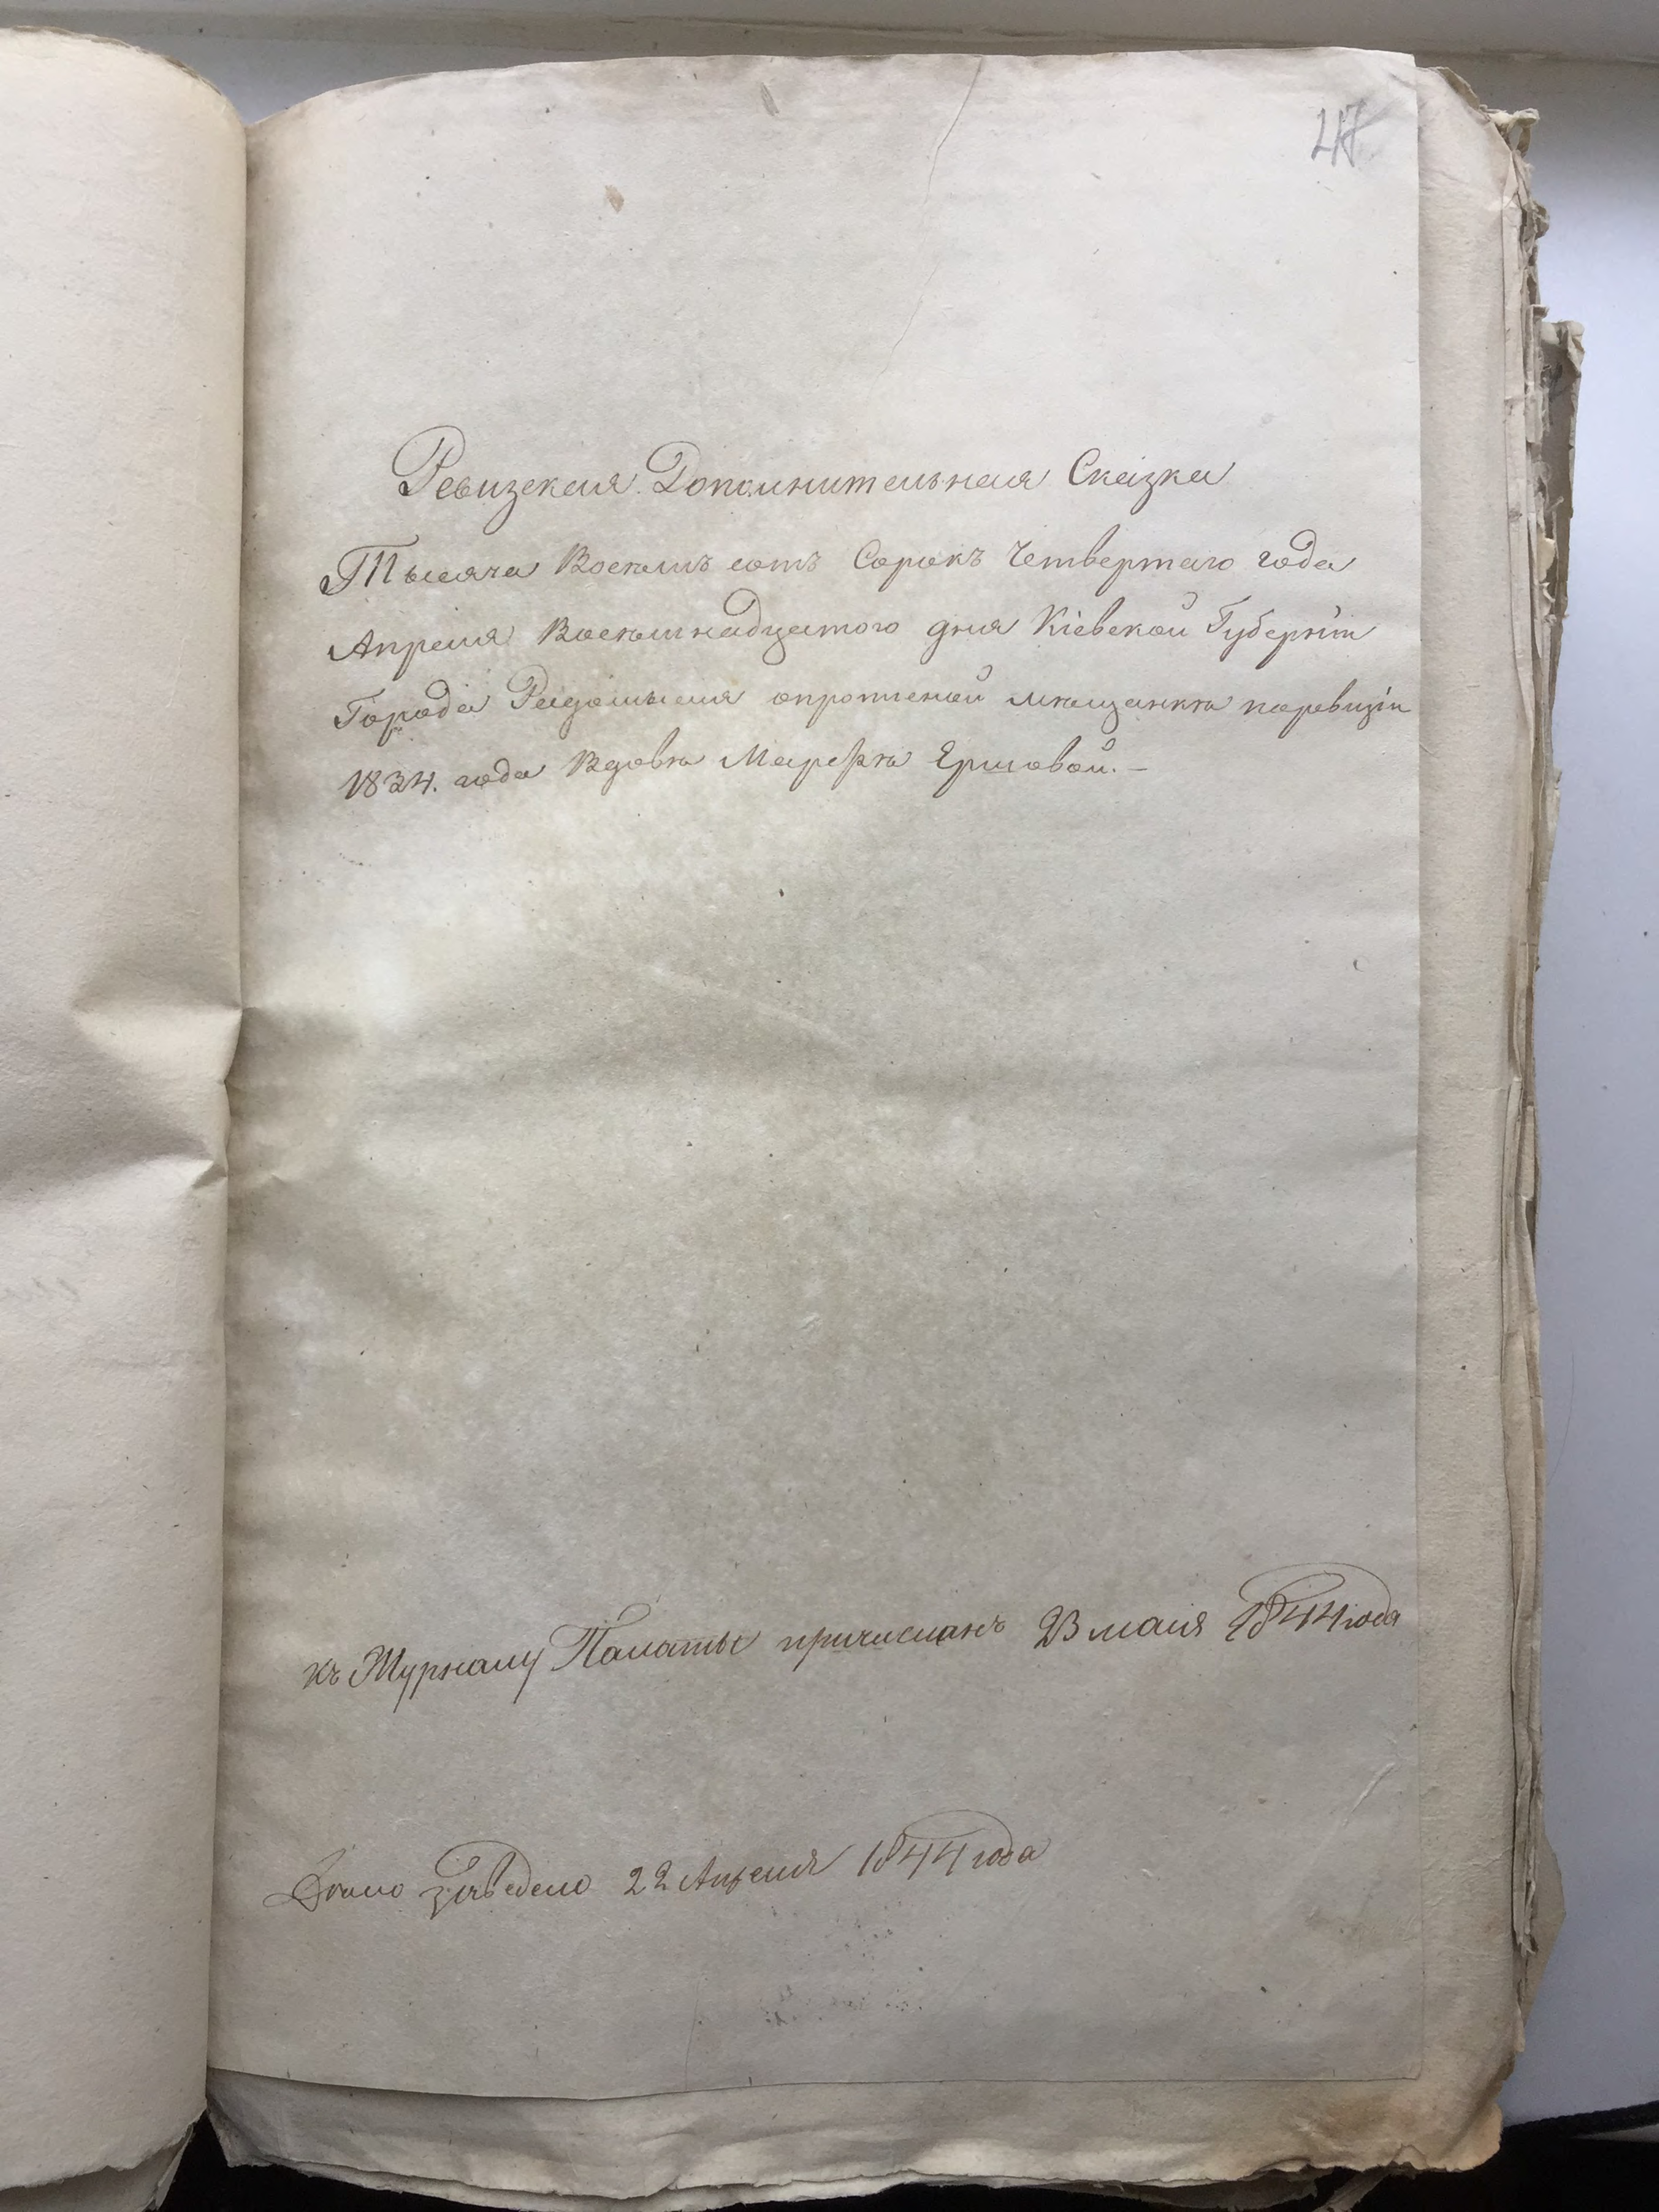 47
Ревизская Дополнительная Сказка
Тысяча Восемь сотъ Сорокъ Четвертаго года
Апреля Восемнадцатого дня Кіевской Губерніи
Города Радомысля опропшеной мещанкѣ поревизіи
1834. года Вдовѣ Марѳѣ Ершовой. –
къ Журналу Палаты причисленъ 23 маія 1844 года
заведено 22 Апреля 1844 года